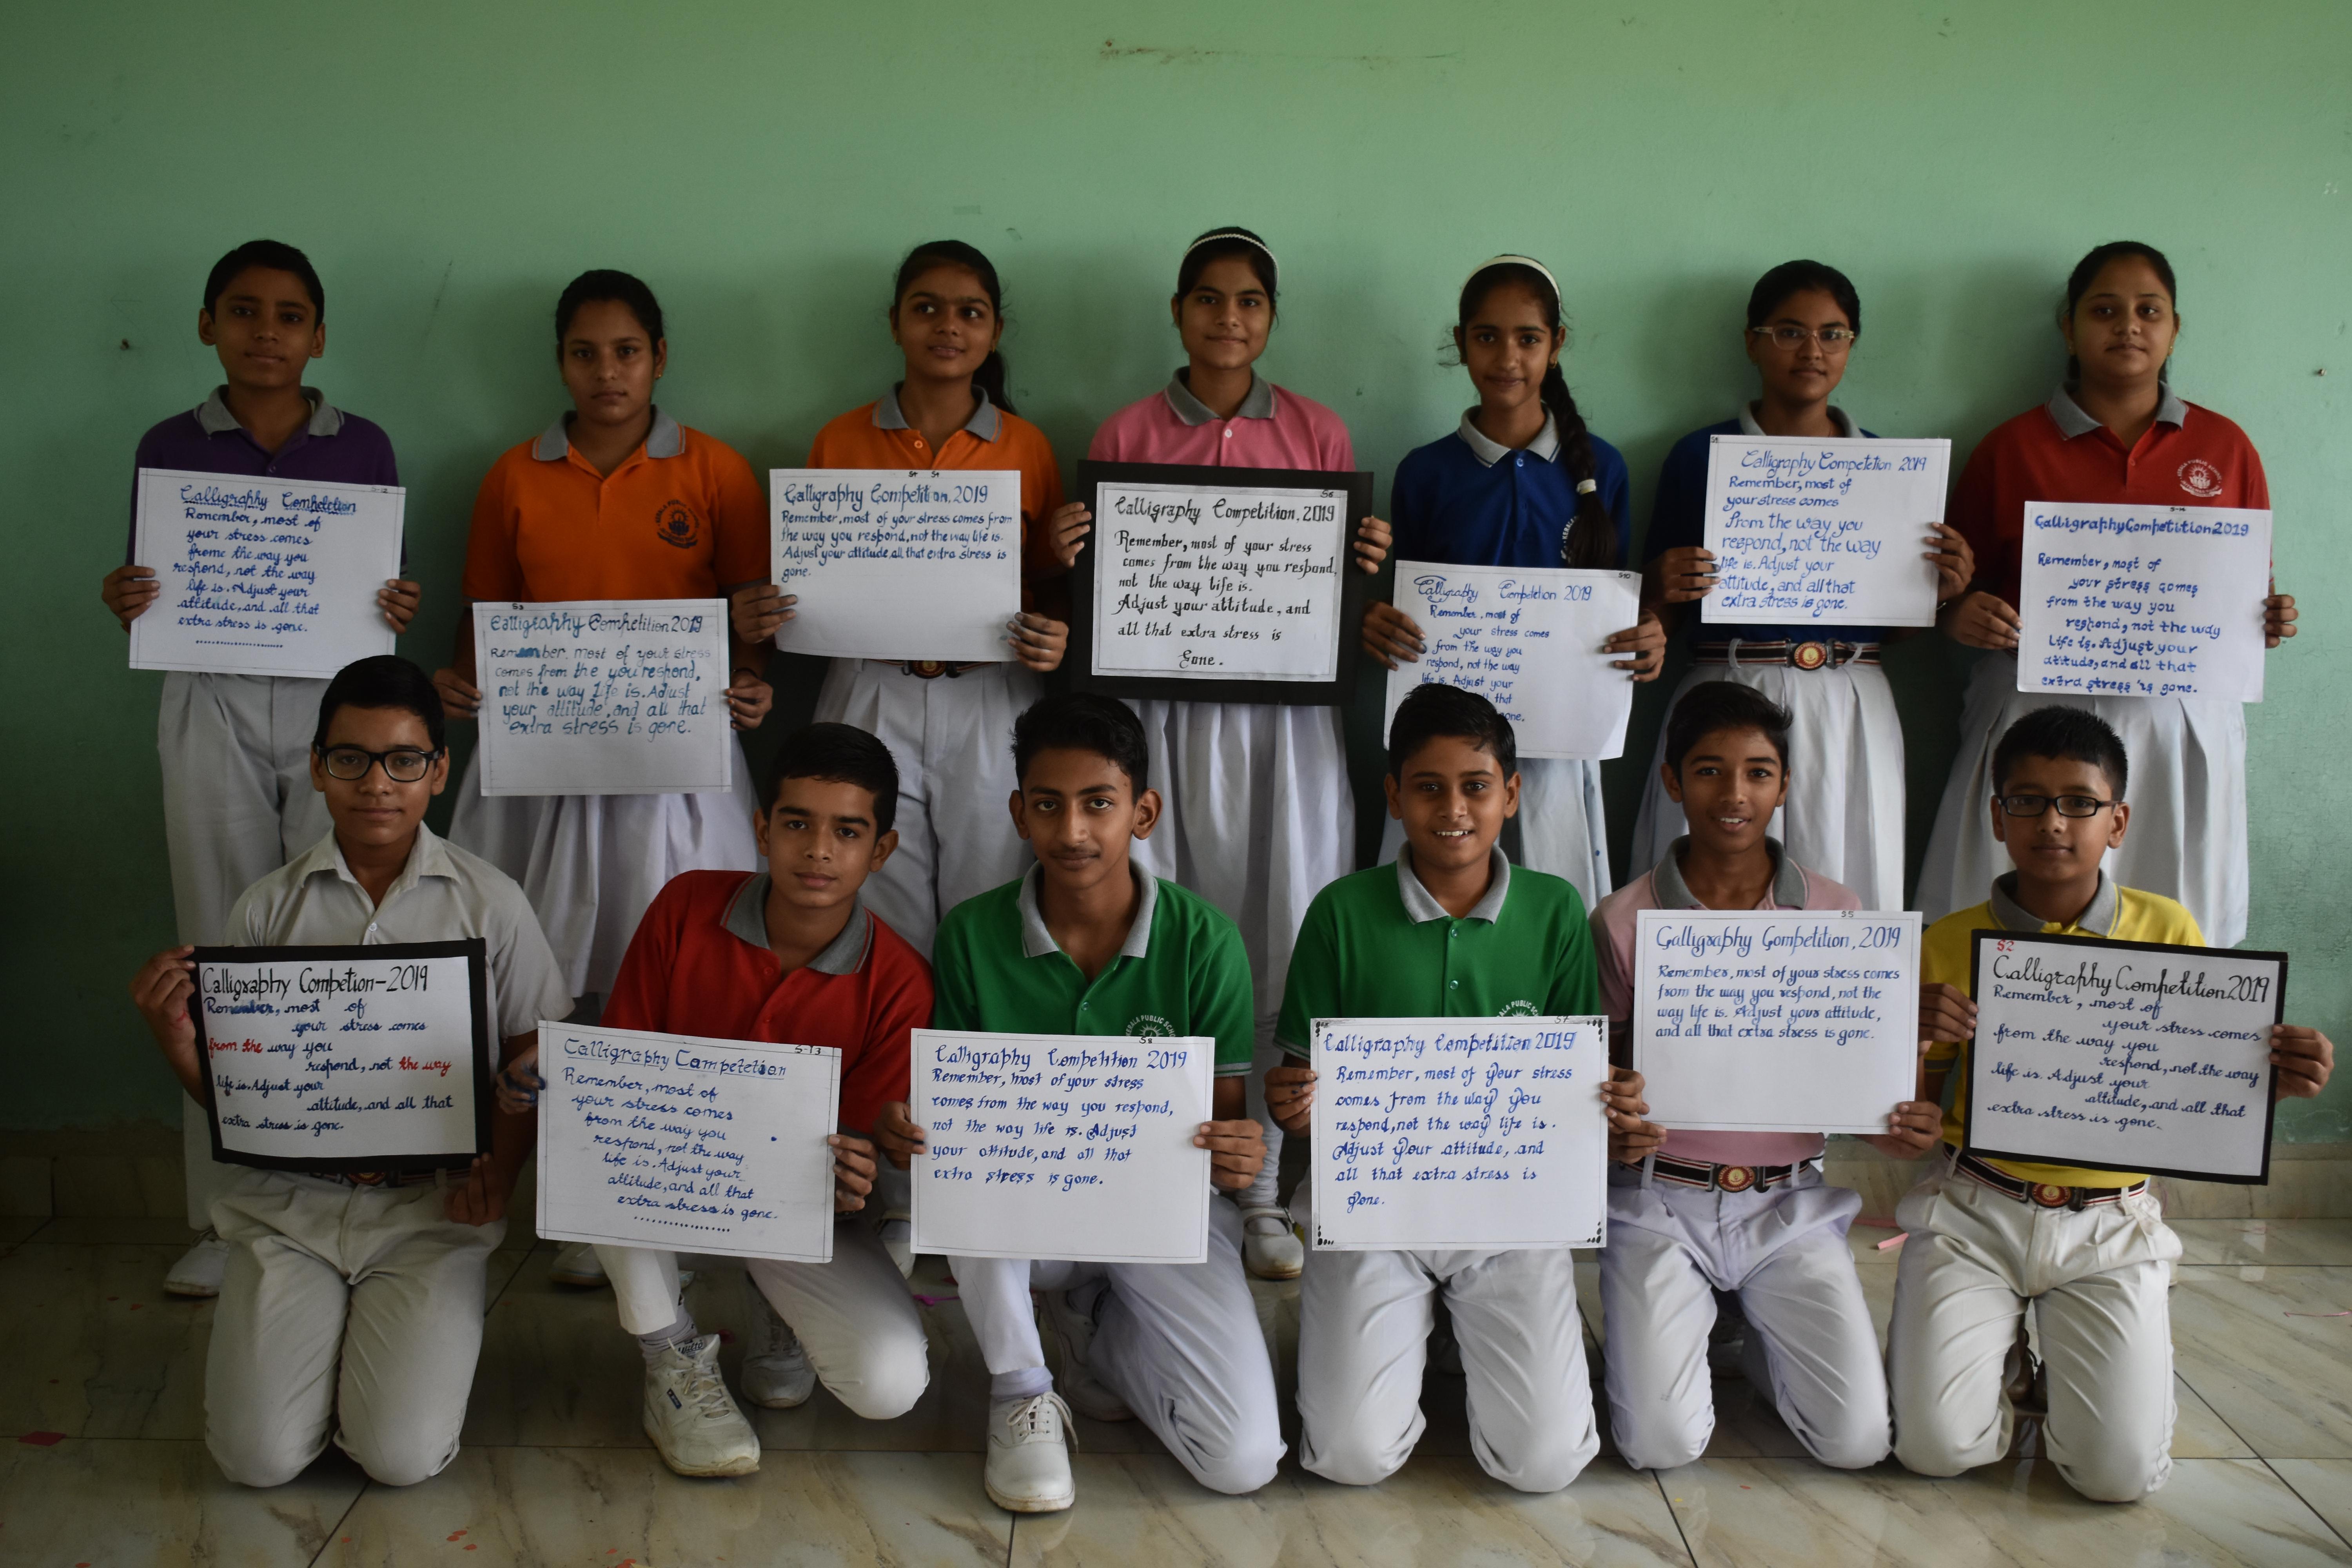 S-12
Calligraphy Competetion
Remember, most of
your stress comes
frome the way you
respond, not the way
life is. Adjust your
attitude, and all that
extra stress is gone.
S3
Calligraphy Competition 2019
Remember, most of your stress
comes from the you respond,
not the way life is. Adust
your attitude, and all that
extra stress is gone.
S4 S4
Calligraphy Competition, 2019
Remember, most of your stress comes from
the way you respond, not the way life is.
Adjust your attitude, all that extra stress is
gone.
S6
Calligraphy Competition, 2019
Remember, most of your stress
comes from the way you respond,
not the way life is.
Adjust your attitude, and
all that extra stress is
Gone.
S10
Calligraphy Competion 2019
Remember, most of
your stress comes
from the way you
respond, not the way
life is. Adjust your
that
gone.
S9
Calligraphy Competetion 2019
Remember, most of
your stress comes
from the way you
respond, not the way
life is. Adjust your
attitude, and all that
extra stress is gone.
PUBLIC
S-14
Calligraphy Competition 2019
Remember, most of
your stress comes
from the way you
respond, not the way
Life is. Adjust your
attitude, and all that
extra stress is gone.
Calligraphy Competion-2019
Remember, most of
your stress comes
from the way you
respond, not the way
life is. Adjust your
attitude, and all that
extra stress is gone.
S-13
Calligraphy Competetion
Remember, most of
your stress comes
from the way you
respond, not the way
life is. Adjust your
attitude, and all that
extra stress is gone.
KERALA PUBLIC SCHOOL
S8
Calligraphy Competition 2019
Remember, most of your stress
comes from the way you respond,
not the way life is. Adjust
your attitude, and all that
extra stress is gone.
KERALA PUBLIC SCHOOL
S7
Calligraphy Competition 2019
Remember, most of your stress
comes from the way you
respond, not the way life is.
Adjust your attitude, and
all that extra stress is
gone.
S5
Calligraphy Competition, 2019
Remember, most of your stress comes
from the way you respond, not the
way life is. Adjust your attitude,
and all that extra stress is gone.
S2
Calligraphy Competition 2019
Remember, most of
your stress comes
from the way you
respond, not the way
life is. Adjust your
attitude, and all that
extra stress is gone.